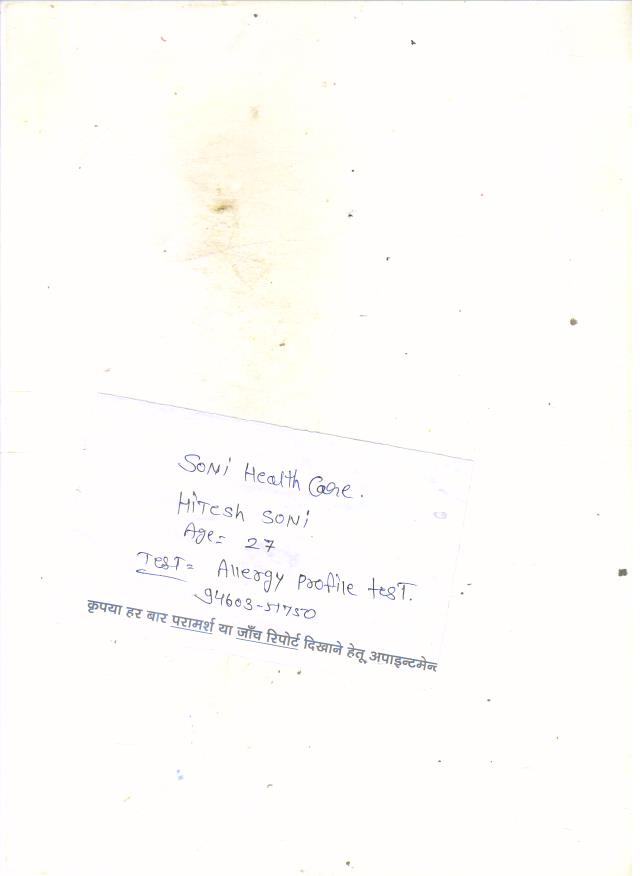 SONi Health Care.
HiTesh SONi
Age= 27
TesT= Allergy profile tesT.
94603-51750
कृपया हर बार परामर्श या जाँच रिपोर्ट दिखाने हेतू अपाइन्टमेन